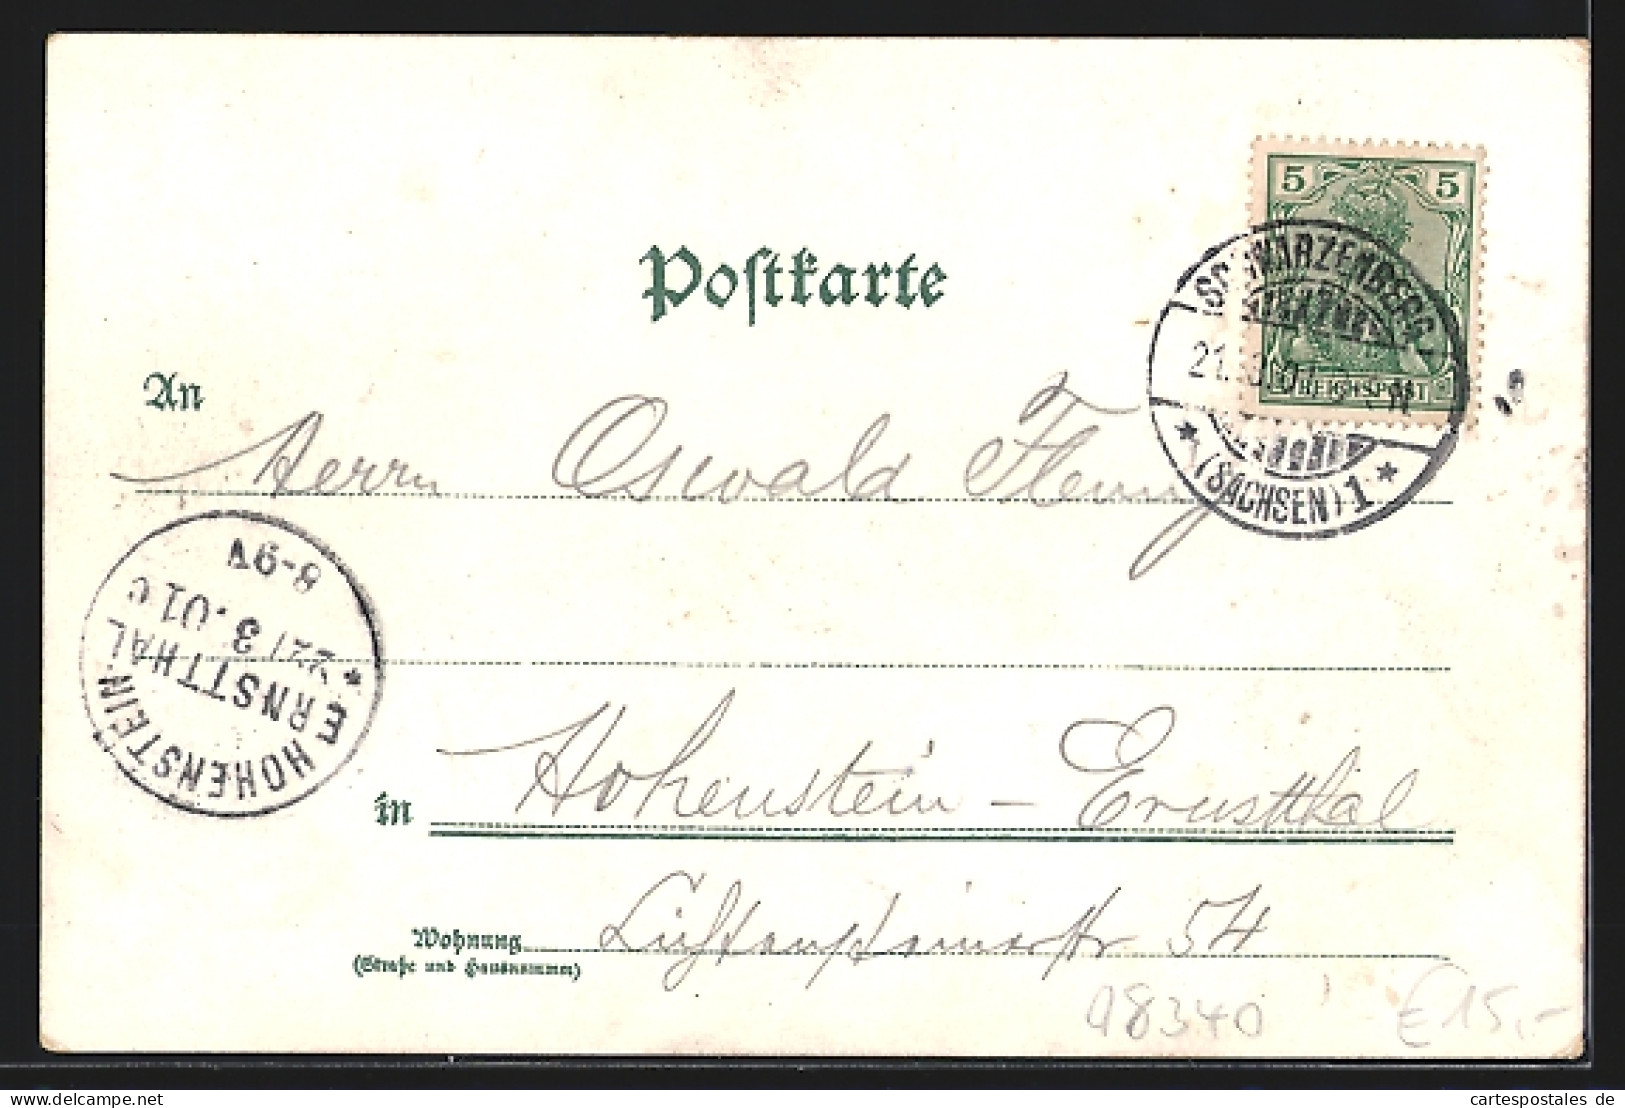 5 5
REICHSPOST
SCHWARZENBERG
21.3.01
(SACHSEN) 1
Postkarte
An Herrn Oswald
HOHENSTEIN-
ERNSTTHAL
22/3.01
8-9V
in Hohenstein - Ernstthal
Wohnung Lichtensteinerstr 54
(Straße und Hausnummer)
98340 €15,-
cartespostales de
delcampe.net
© the_seller